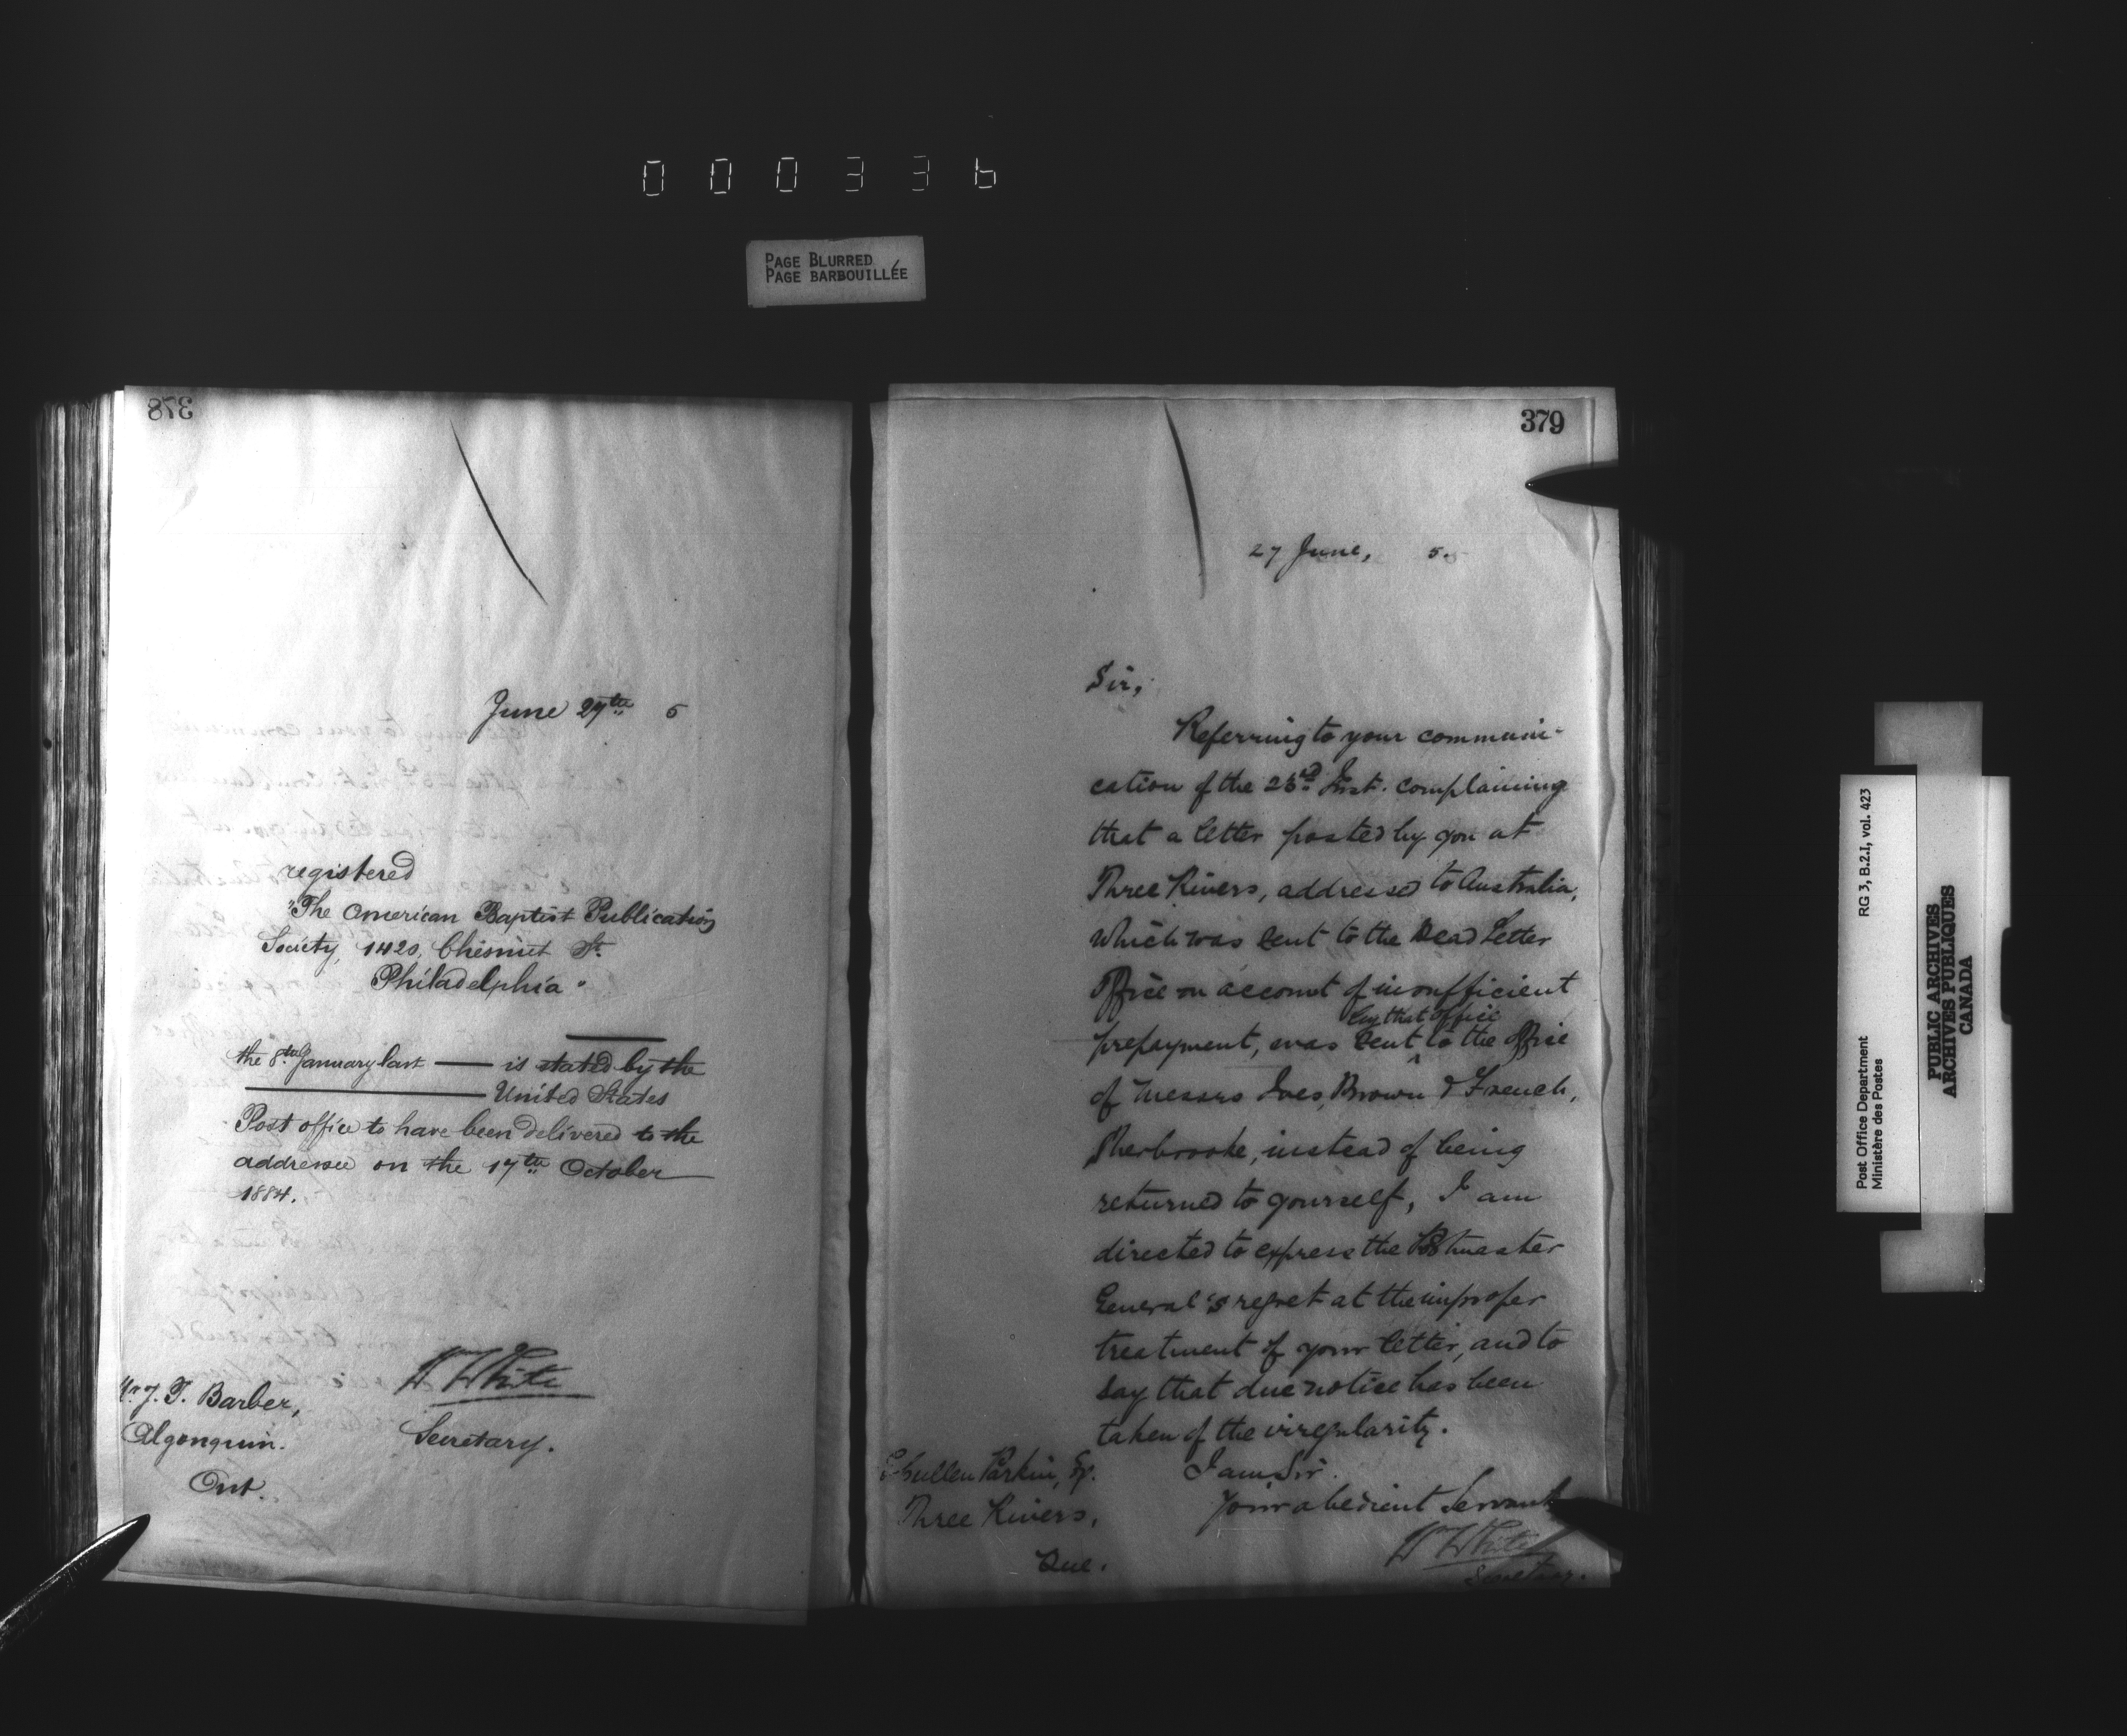 000336
PAGE BLURRED
PAGE BARBOUILLÉE
378
June 27th 5
registered
"The American Baptist Publication
Society, 1420, Chesnut St.
Philadelphia"
the 8th January last — is stated by the
United States
Post office to have been delivered to the
addressee on the 17th October
1884.
W White
Secretary.
Mr J. T. Barber,
Algonquin.
Ont.
379
27 June, 5.
Sir,
Referring to your communi-
cation of the 23rd Inst. complaining
that a letter posted by you at
Three Rivers, addressed to Australia,
which was sent to the Dead Letter
Office on account of insufficient
prepayment, was sent ^ by that office to the Office
of Messrs Ives, Brown & French,
Sherbrooke, instead of being
returned to yourself, I am
directed to express the Postmaster
General's regret at the improper
treatment of your letter, and to
say that due notice has been
taken of the irregularity.
I am, Sir.
Your obedient Servant
W White
Secretary.
Parkin, Esq.
Three Rivers,
Que.
Post Office Department
Ministère des Postes
RG 3, B.2.I, vol. 423
PUBLIC ARCHIVES
ARCHIVES PUBLIQUES
CANADA